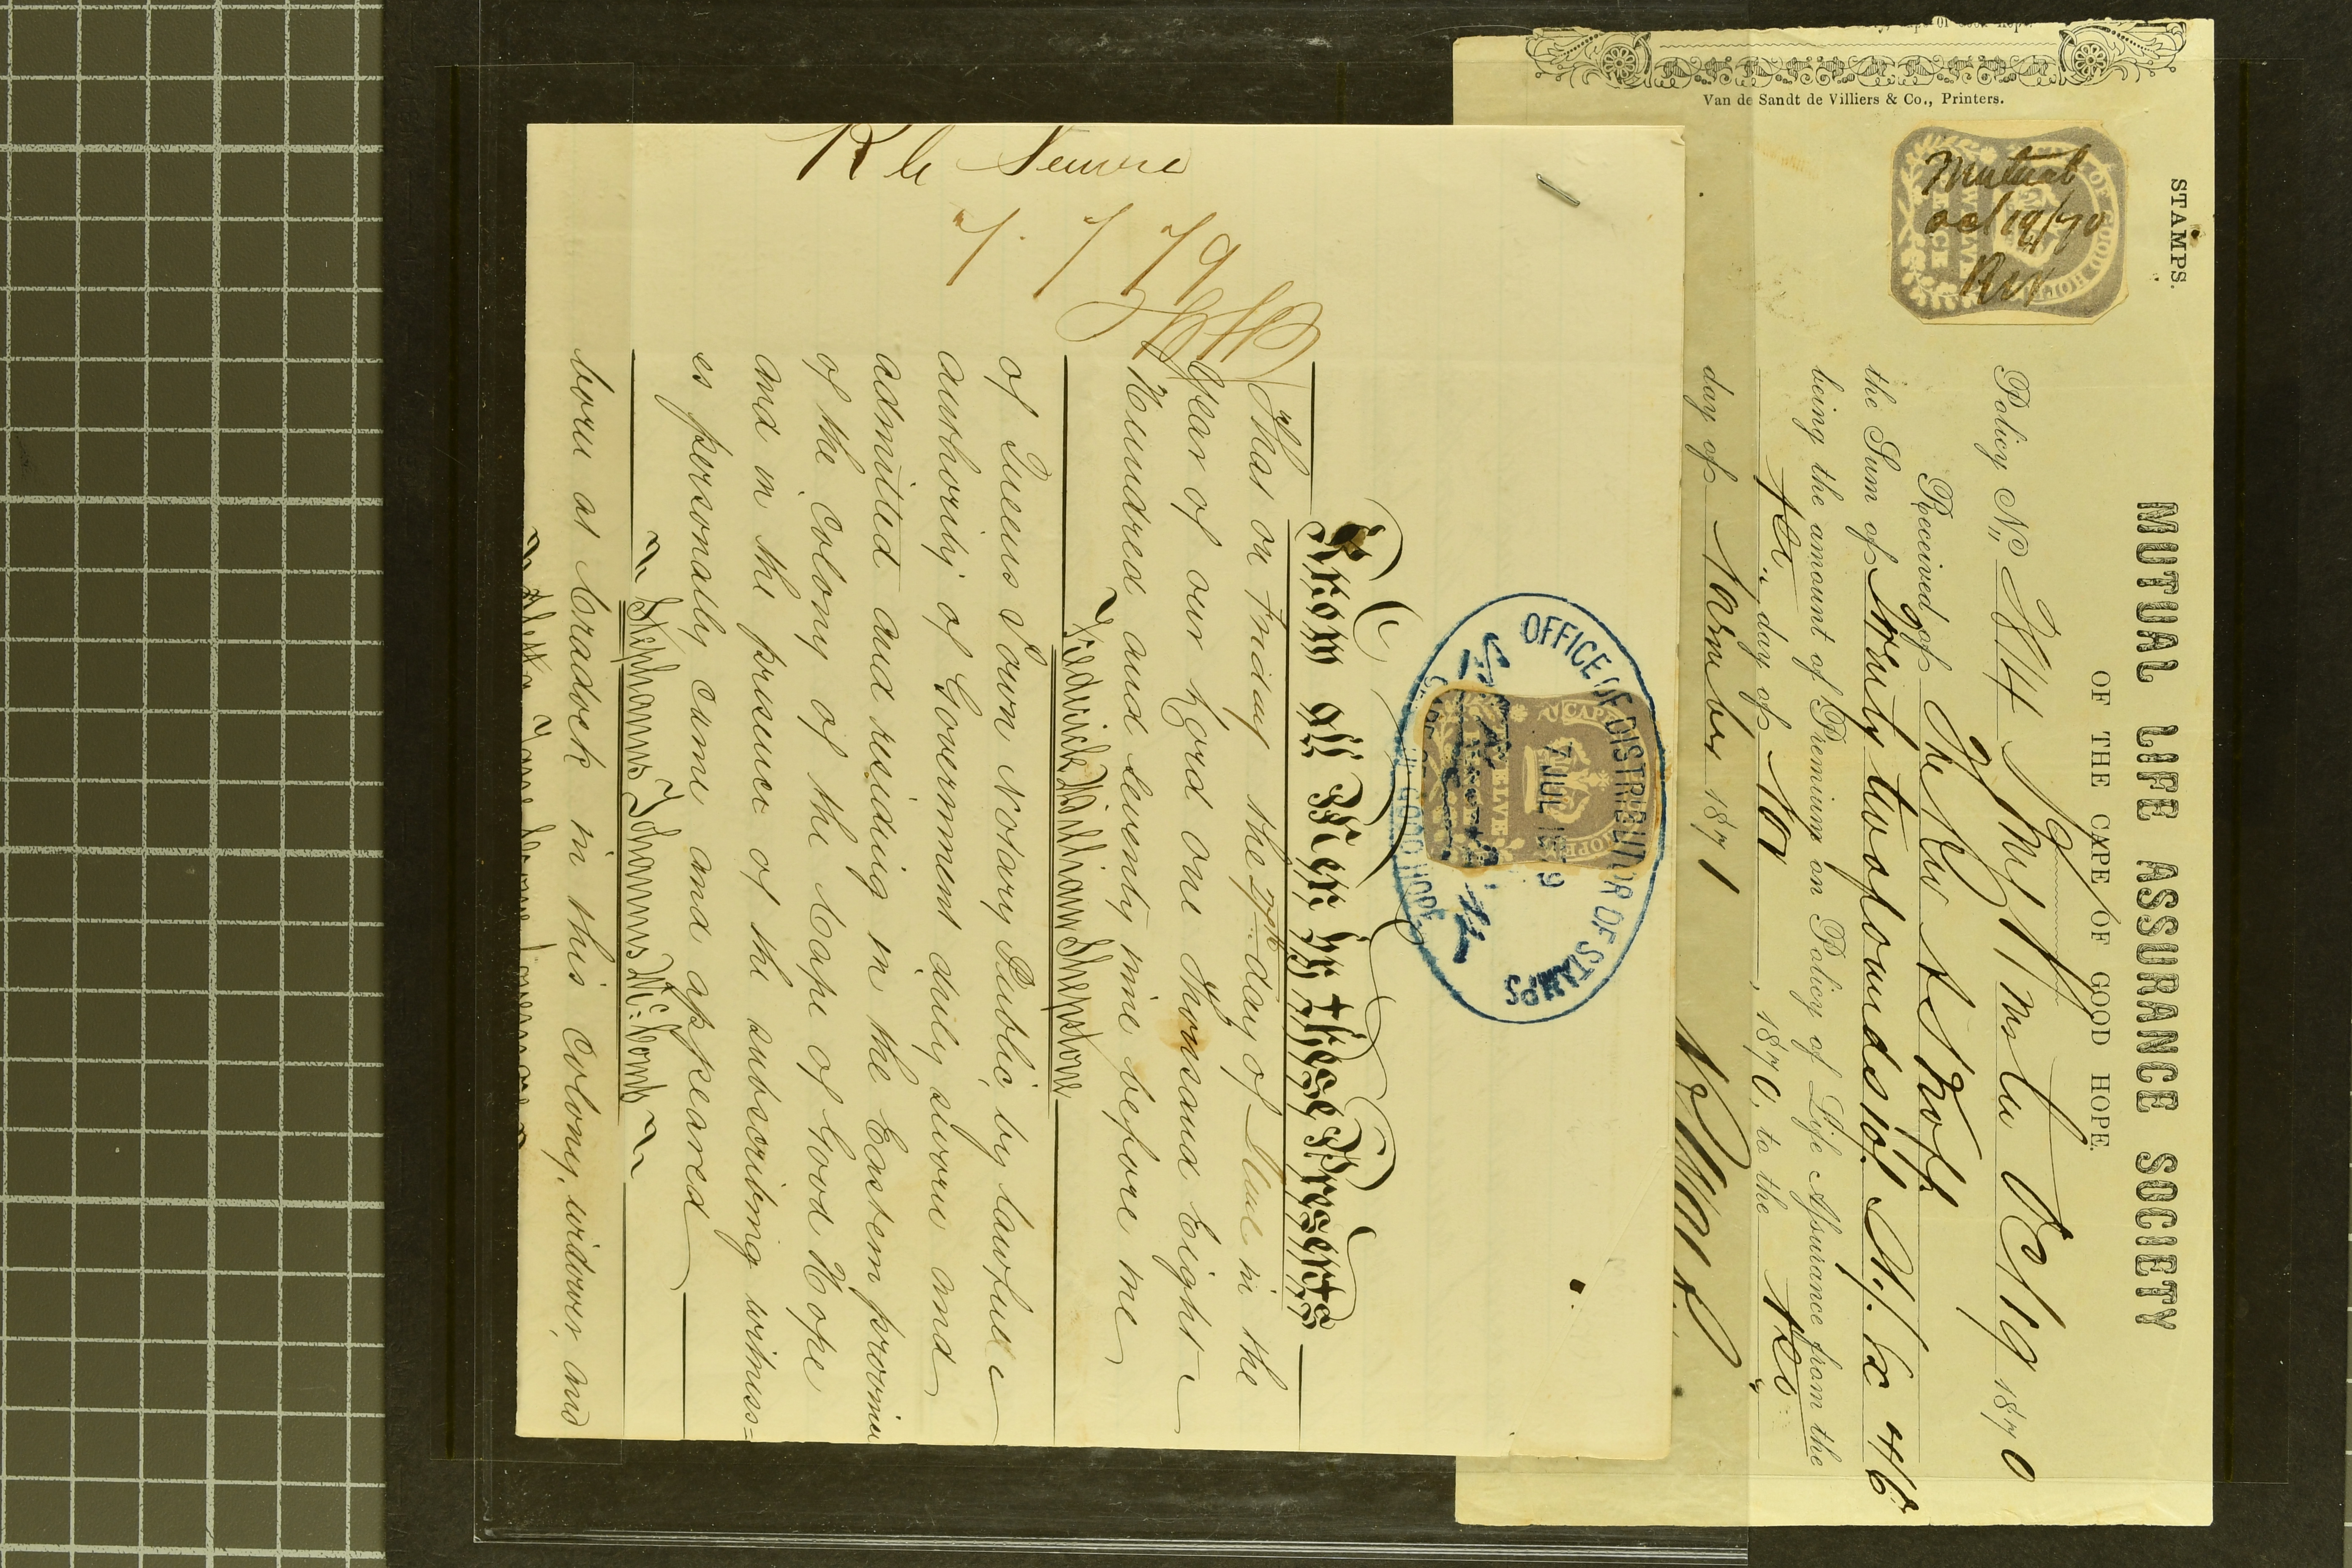 Van de Sandt de Villiers & Co., Printers.
STAMPS.
CAPE OF GOOD HOPE
TWELVE PENCE
Mutual
oct 19/70
MUTUAL LIFE ASSURANCE SOCIETY
OF THE CAPE OF GOOD HOPE.
Policy No. 214 Oct 19 1870
Received of The Rev
the Sum of Twenty two pounds
being the amount of Premium on Policy of Life Assurance from the
day of Nov, 1870, to the
day of 1871
OFFICE OF DISTRIBUTOR OF STAMPS
7 JUL 1879
CAPE OF GOOD HOPE
Know all Men by these Presents
That on Friday the day of in the
Year of our Lord one Thousand Eight
Hundred and Seventy nine before me
Friedrich William Shepstone
of Queens Town Notary Public, by lawful
authority of Government duly sworn and
admitted and residing in the Eastern province
of the Colony of the Cape of Good Hope
and in the presence of the subscribing witness=
es personally came and appeared
Stephanus Johannes
born at Cradock in this Colony, widower, and
7.7.79